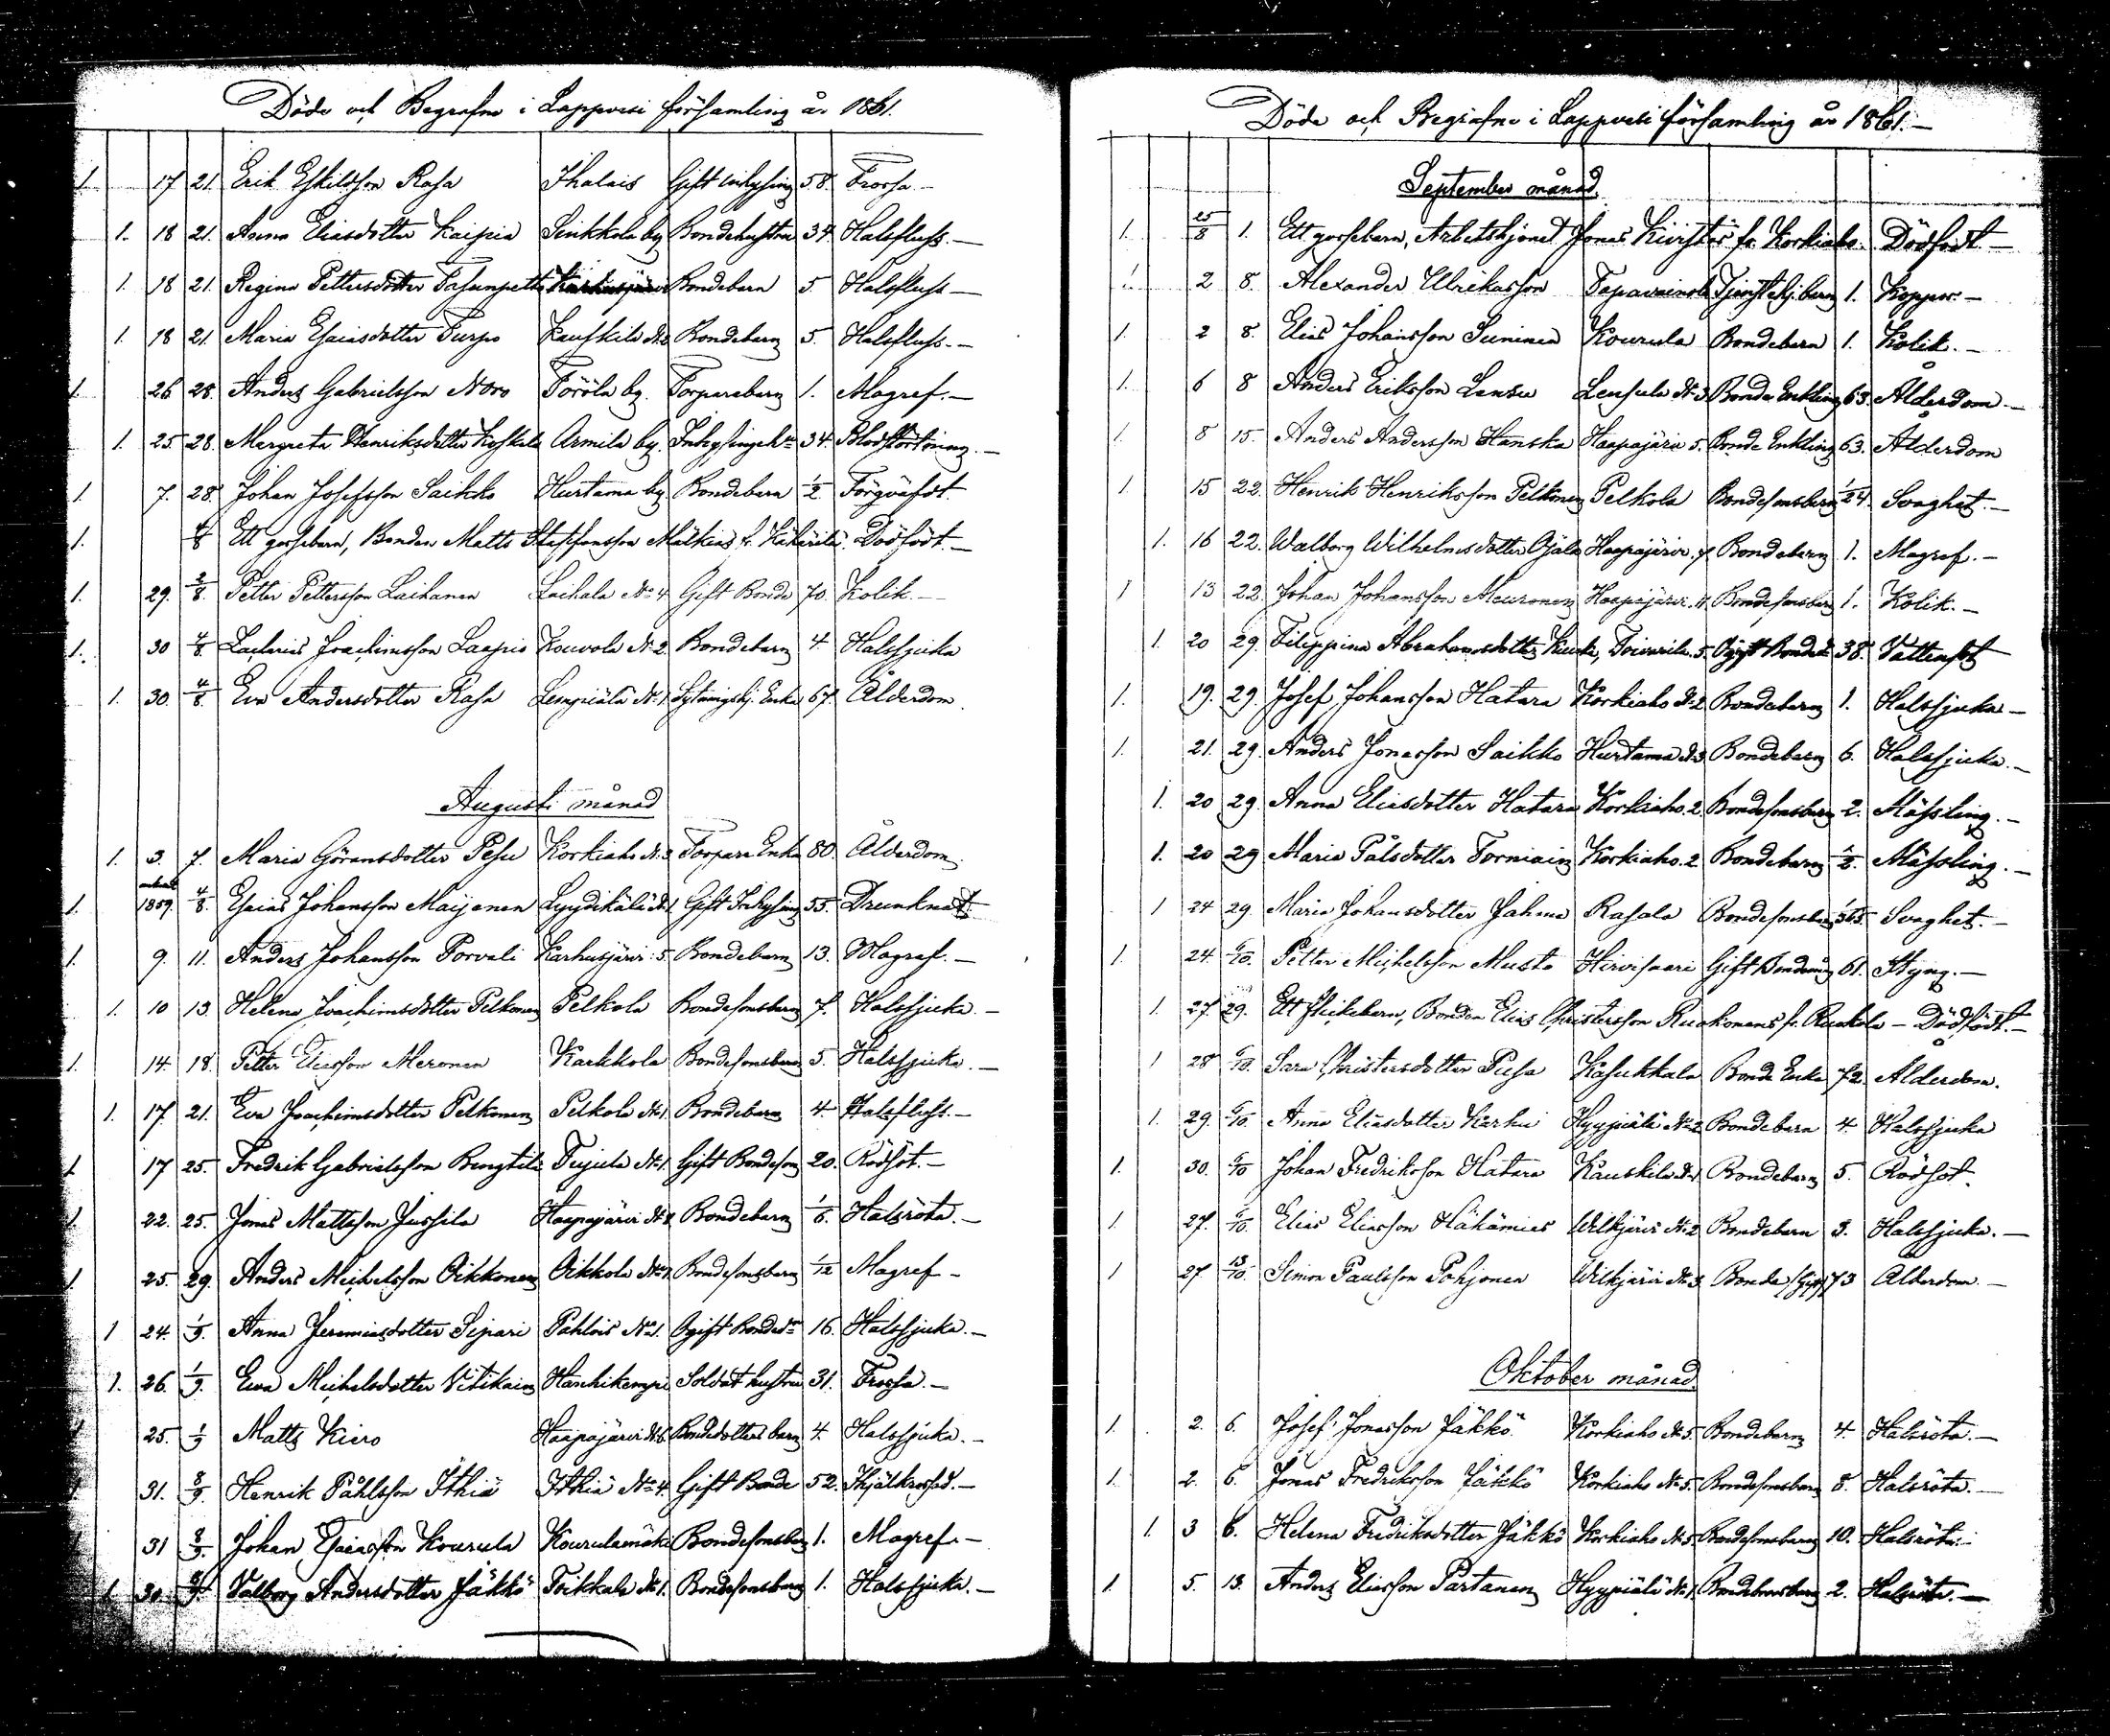 Döde och Begrafne i Lappvesi församling år 1861.
1. 17 21. Erik Eskildsson Rasa Ihalais Gift inhysing 58. Frossa.-
1. 18 21. Anna Eliasdotter Kaipia Simkkola by Bondehustru 34. Halsfluss.-
1. 18 21. Regina Pettersdotter Bondebarn 5 Halsfluss-
1. 18 21. Maria Esaiasdotter Turpo Kauskila Bondebarn 5. Halsfluss.-
1. 26 28. Anders Gabrielsson Noro Töröla by. Torparebarn 1. Magref.-
1. 25 28. Margreta Henriksdotter Koskela Armila by. Inhysingeh:u 34. Blodstörtning.-
1. 7. 28. Johan Josefsson Saikko Hurtama by. Bondebarn 1/2 Förqväfdt.
1. 4/8 Ett gossebarn, Bonden Matts Staffansson Mälkiäs fr. Kähärilä. Dödfödt.-
1. 29. 2/8. Petter Pettersson Laihanen Laihala No 4 Gift Bonde 70. Kolik.-
1. 30 4/8. Zacharias Joachimsson Laapio Kouvola No 2 Bondebarn 4 Halssjuka
1. 30. 4/8. Eva Andersdotter Rasa Lempiälä No 1 Sytningshj. Enka 67. Ålderdom.
Augusti månad
1. 3. 7. Maria Göransdotter Pesu Korkiaho No 3 Torpare Enka 80. Ålderdom.
1. 1859. 4/8. Esaias Johansson Maijanen Lyydikälä No 1 Gift Inhysing 55. Drunknat.
1. 9. 11. Anders Johansson Porvali Karhusjärvi 5. Bondebarn 13. Magref.-
1. 10 13. Helena Joachimsdotter Pelkonen Pelkola Bondesonsbarn 7. Halssjuka.-
1. 14 18. Petter Eliasson Meronen Karkkola Bondesonsbarn 5. Halssjuka.-
1. 17. 21. Eva Joachimsdotter Pelkonen Pelkola No 1. Bondebarn 4. Halsfluss.-
1. 17 25. Fredrik Gabrielsson Tujula No 1. Gift Bondeson 20. Rödsot.-
1. 22. 25. Jonas Mattsson Jussila Haapajärvi Bondebarn 1/6. Halsröta.-
1. 25. 29. Anders Michelsson Oikkonen Oikkola No 1. Bondesonsbarn 1/12 Magref-
1 24. 1/9. Anna Jeremiasdotter Sipari Pahlois No 1. Ogift Bonded:r 16. Halssjuka.-
1. 26. 1/9. Eva Michelsdotter Vitikain Hanhikempi Soldat hustru 31. Frossa.-
1 25. 1/9 Matts Kiero Haapajärvi No 6 Bondedotters barn 4. Halssjuka.-
1 31. 8/9. Henrik Påhlsson Ithiä Ithiä No 4 Gift Bonde 52. Ihjälkrossad.-
1 31 8/9. Johan Esaiasson Kourula Kourulamäki Bondesonsbarn 1. Magref.-
1. 30. 8/9. Valborg Andersdotter Jäkkö Toikkala No 1. Bondesonsbarn 1. Halssjuka.-
Döde och Begrafne i Lappvesi församling år 1861.-
September månad.
1. 25/8 1. Ett gossebarn, Arbetskjonet Jonas fr. Korkiaho. Dödfödt.-
1. 2 8. Alexander Ulrikasson Tapavainola Tjensthj. barn 1. Koppor.-
1. 2 8. Elias Johansson Suninen Kourula Bondebarn 1. Kolik.-
1. 6 8 Anders Eriksson Lensu Lensula No 3. Bonde Enkling 63. Ålderdom.-
1. 8 15. Anders Andersson Hanska Haapajärvi 5. Bonde Enkling 63. Ålderdom
1 15 22. Henrik Henriksson Pelkonen Pelkola Bondesonsbarn 1/24. Svaghet.-
1. 16 22. Walborg Wilhelmsdotter Ojala Haapajärvi. 7 Bondebarn 1. Magref.-
1 13 22. Johan Johansson Meuronen Haapajärvi. 11. Bondesonsbarn 1. Kolik.-
1. 20 29. Filippina Abrahamsdotter Toivarila. 5. Ogift 38. Vattusot
1. 19. 29. Josef Johansson Hatara Korkiaho No 2 Bondebarn 1. Halssjuka-
1. 21. 29. Anders Jonasson Saikko Hurtama No 3 Bondebarn 6. Halssjuka.-
1. 20 29. Anna Eliasdotter Hatara Korkiaho. 2. Bondesonsbarn 2. Mässling.-
1. 20 29 Maria Pålsdotter Torniain Korkiaho. 2 Bondebarn 1/2. Mässling.-
1 24 29. Maria Johansdotter Jahma Rasala Bondesonsbarn Svaghet.-
1. 24. 6/10. Petter Michelsson Musto Hirvisaari Gift 61. Styng.-
1. 27. 29. Ett flickebarn, Bonden Elias Christersson Ruohonens fr. Ruohola - Dödfödt.-
1 28 6/10. Sara Christersdotter Pusa Kasukkala Bonde Enka 72. Ålderdom.
1. 29. 6/10. Anna Eliasdotter Karhu Hyypiälä No 2 Bondebarn 4. Halssjuka
1. 30. 6/10 Johan Fredriksson Hatara Kauskila No 1 Bondebarn 5. Rödsot.
1. 27. 6/10 Elias Eliasson Hähämies Wilkjärvi No 2 Bondebarn 3. Halssjuka.-
1 27 13/10. Simon Paulsson Pohjonen Wilkjärvi No 3. Bonde (Gift) 73 Ålderdom.-
Oktober månad.
1. 2. 6. Josef Jonasson Jäkkö. Korkiaho No 5. Bondebarn 4. Halsröta.-
1. 2. 6. Jonas Fredriksson Jäkkö Korkiaho No 5. Bondesonsbarn 8. Halsröta.-
1. 3 6. Helena Fredriksdotter Jäkkö Korkiaho No 5. Bondesonsbarn 10. Halsröta.-
1. 5. 13. Anders Eliasson Partanen Hyypiälä No 1 Bondesonsbarn 2. Halsröta.-